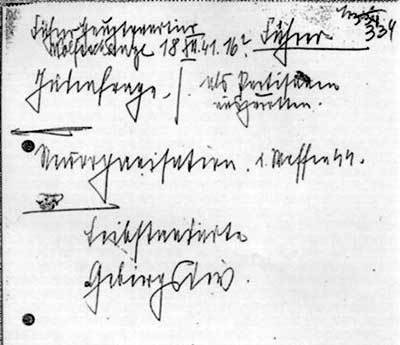 334
Führerhauptquartier
Wolfsschanze 18 XII.41. 16h Führer
Judenfrage. | als Partisanen
auszurotten.
Neuorganisation d. Waffen SS.
Leibstandarte
Gebirgsdiv.